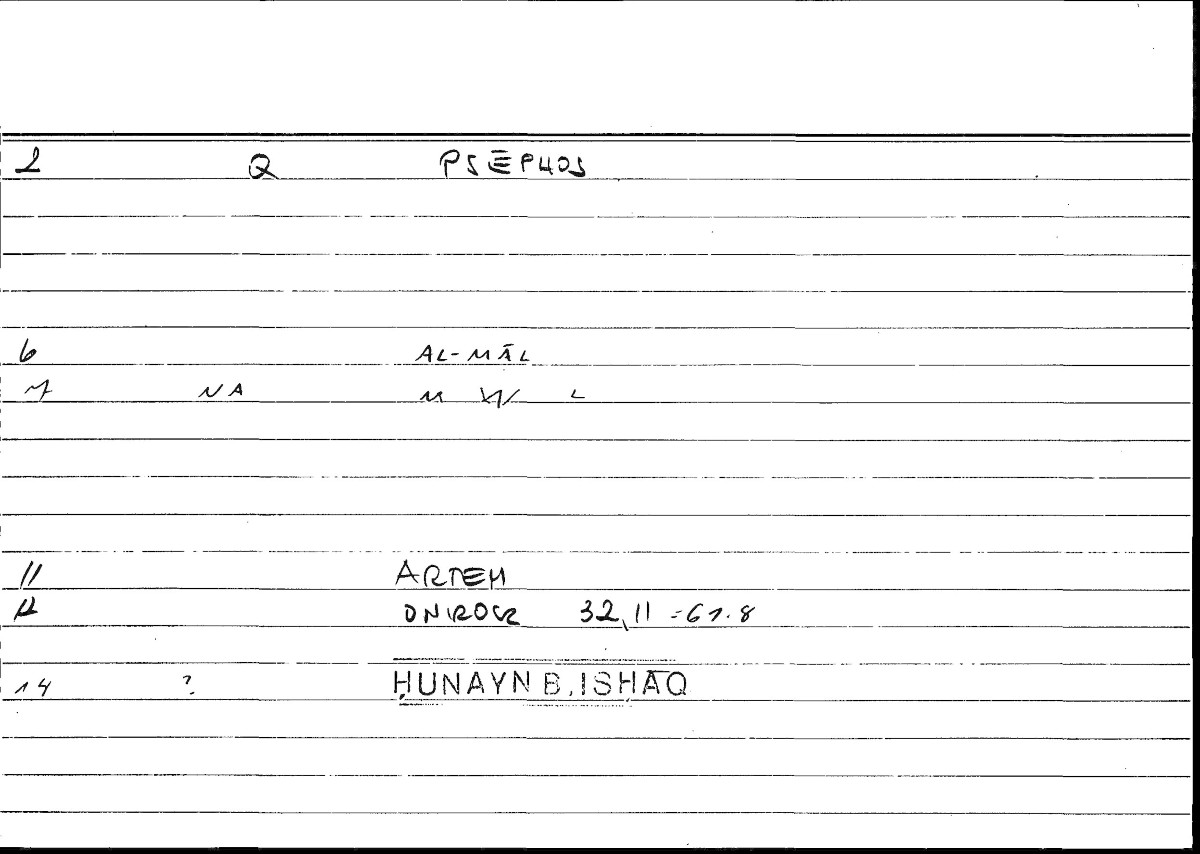 2 Q PSĒPHOS
6 AL-MĀL
7 NA M W L
11 ARTEM
12 ONIROCR 32,11 = 61.8
14 ? ḤUNAYN B. ISḤĀQ